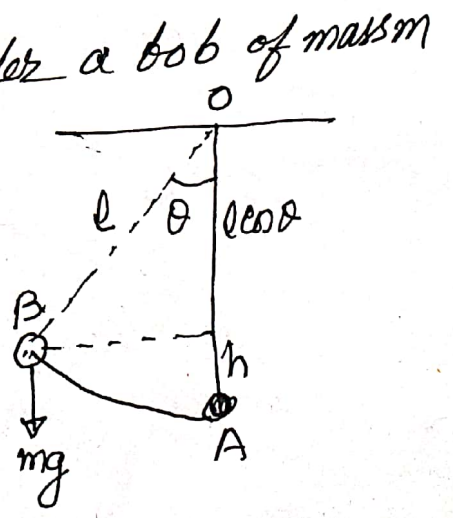 a bob of mass m
O
l θ lcosθ
B
h
mg
A